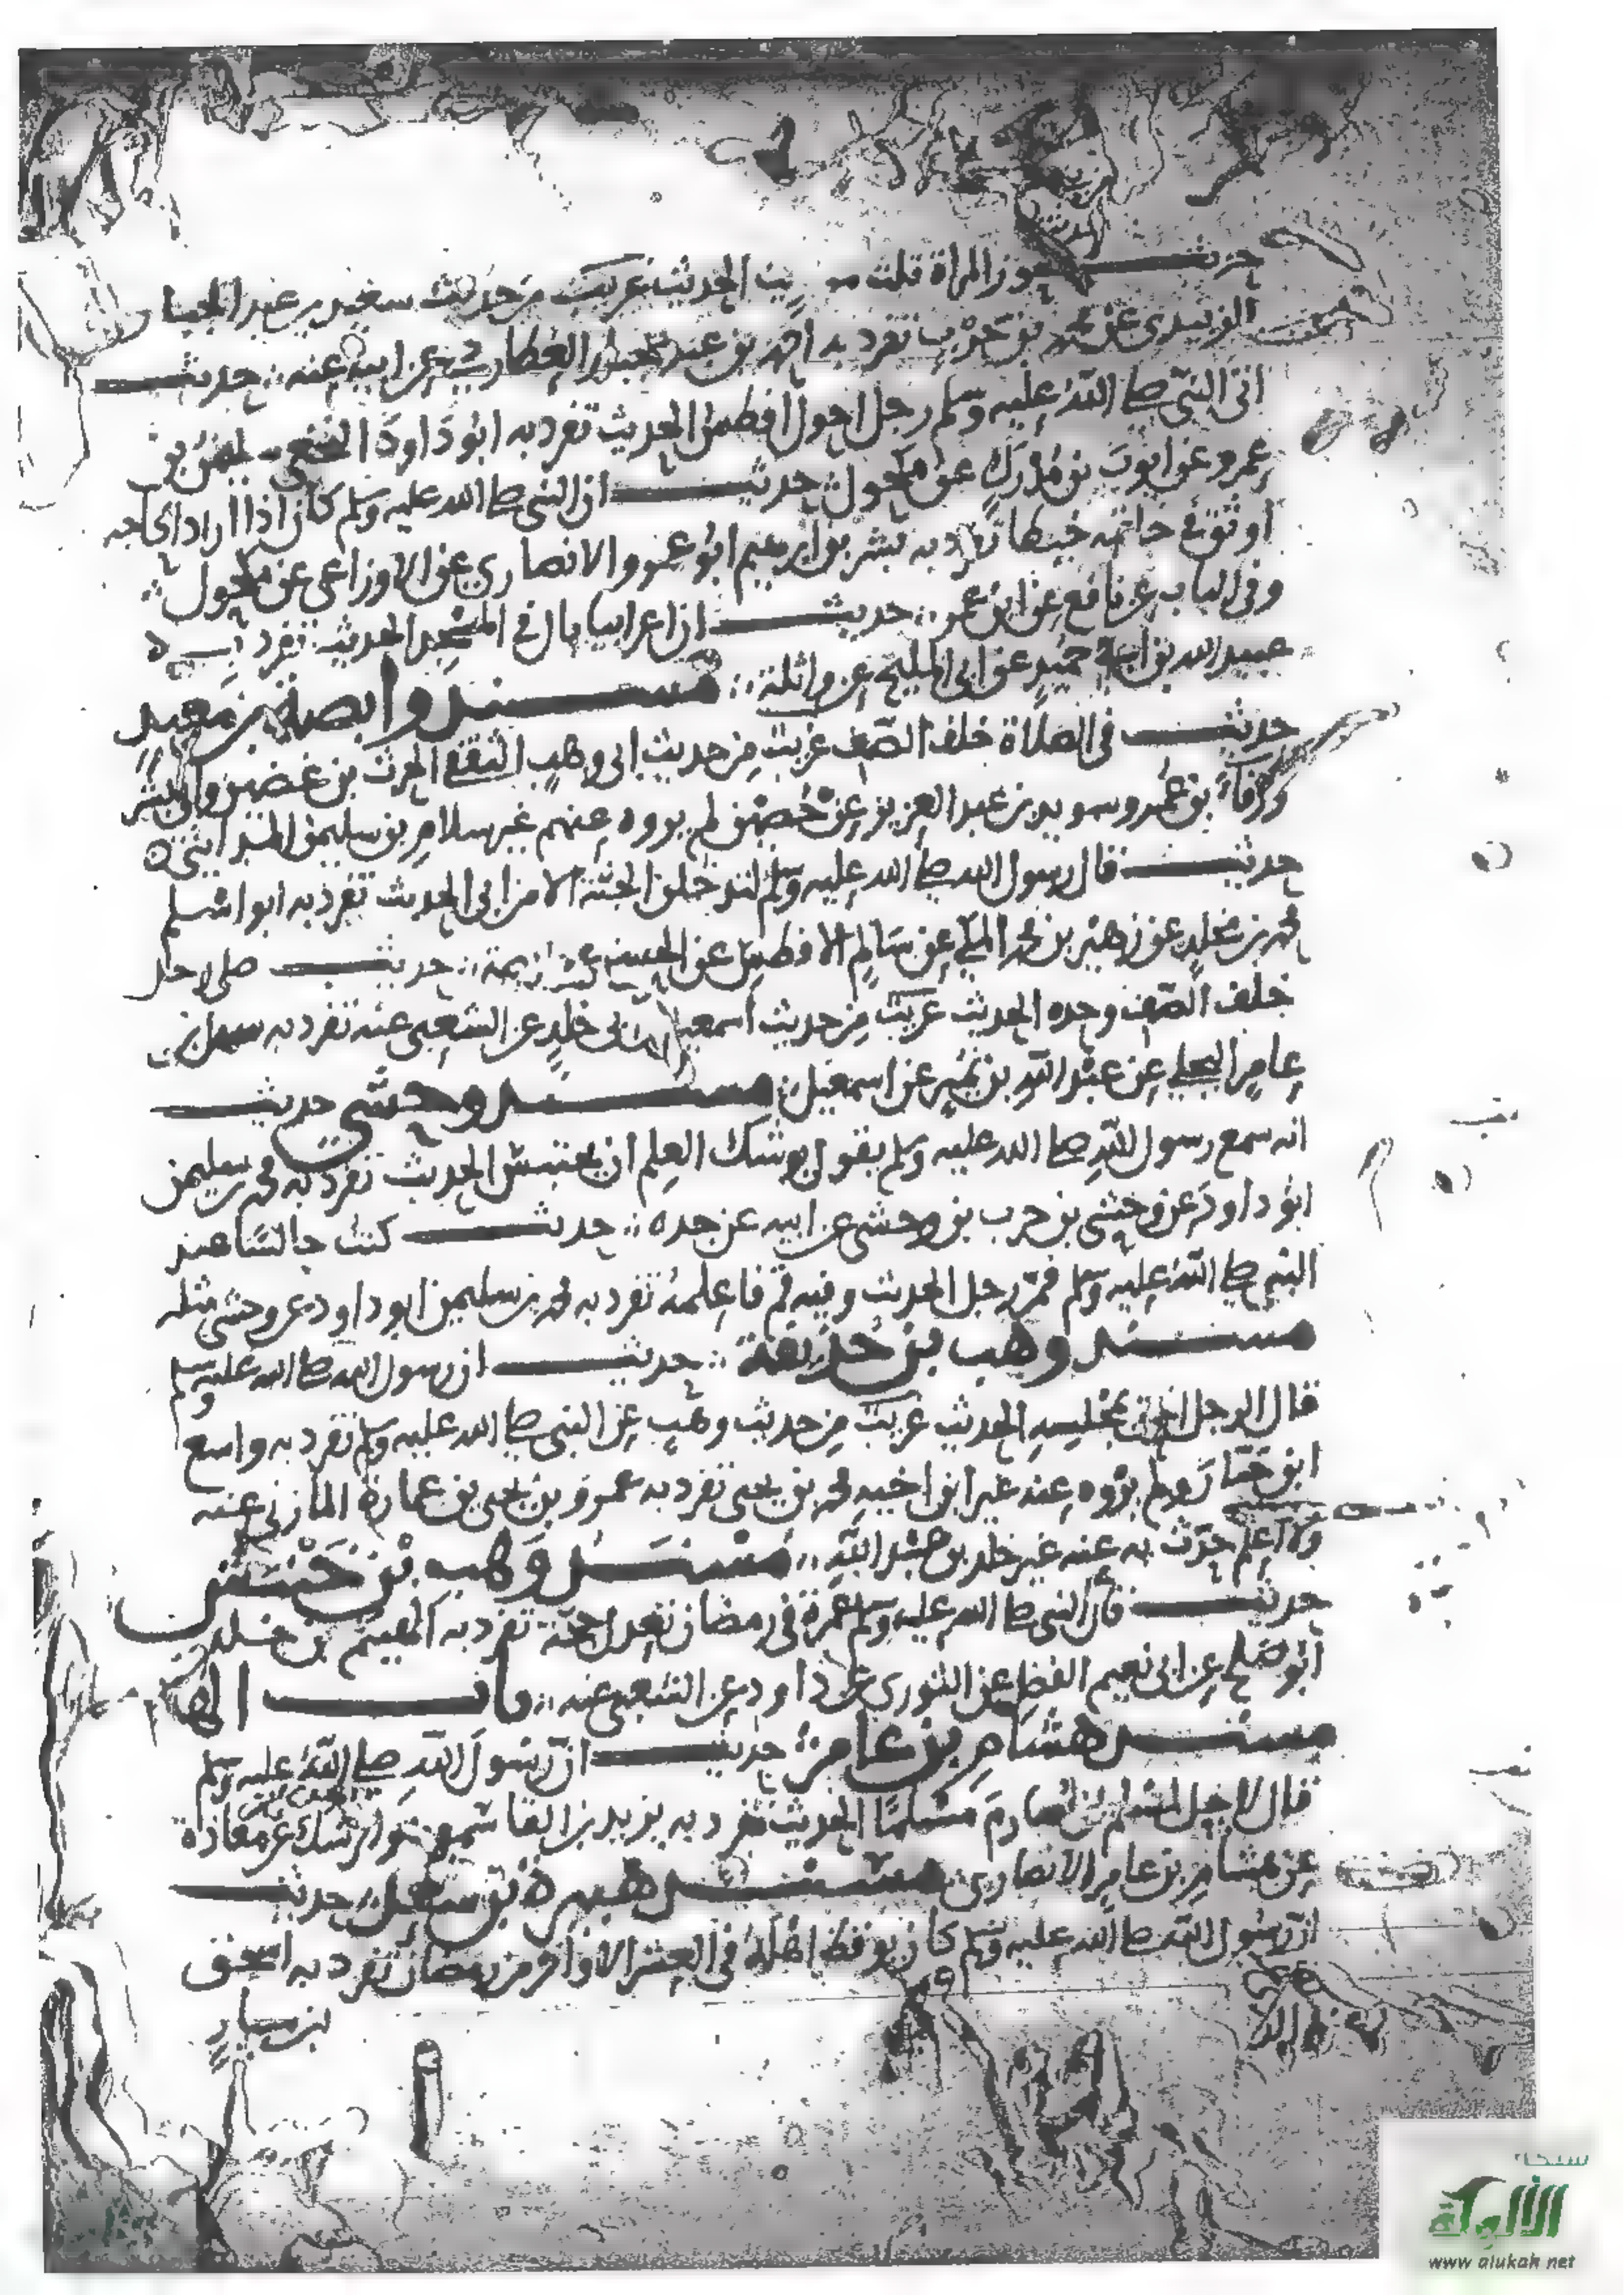 حديث تحوز المراة ثلث مواريث الحديث غريب من حديث سعيد بن عبد الجبار
الزبيدي عن محمد بن حرب تفرد به احمد بن عبد الجبار العطاردي عن ابيه عنه حديث
اتى النبي صلى الله عليه وسلم رجل احول افطس الحديث تفرد به ابو داود النخعي سليمن بن
عمرو عن ايوب بن مدرك عن مكحول حديث ان النبي صلى الله عليه وسلم كان اذا اراد الحاجه
اوثق في خاتمه خيطا تفرد به بشر بن ابرهيم ابو عمرو الانصاري عن الاوزاعي عن مكحول
وفي الباب عن نافع عن ابن عمر حديث ان اعرابيا بال في المسجد الحديث تفرد به
عبيد الله بن ابي حميد عن ابي المليح عن واثلة مسند وابصة بن معبد
حديث في الصلاة خلف الصف غريب من حديث ابي وهب الثقفي الحرث بن غضين وابي بشر
ورقاء بن عمر وسويد بن عبد العزيز عن حصين لم يروه عنهم غير سلام بن سليمن المدايني
حديث قال رسول الله صلى الله عليه وسلم لتدخلن الجنة الا من ابى الحديث تفرد به ابو اسلم
محمد بن مخلد عن زهير بن محمد المكي عن سالم الافطس عن حديث صلى رجل
خلف الصف وحده الحديث غريب من حديث اسمعيل بن ابي خلد عن الشعبي عنه تفرد به سهل بن
عامر البجلي عن عبد الله بن نمير عن اسمعيل مسند وحشي حديث
انه سمع رسول الله صلى الله عليه وسلم يقول يوشك العلم ان يختلس الحديث تفرد به محمد بن سليمن
ابو داود عن وحشي بن حرب بن وحشي عن ابيه عن جده حديث كنت جالسا عند
النبي صلى الله عليه وسلم فمر رجل الحديث وفيه قم فاعلمه تفرد به محمد بن سليمن ابو داود عن وحشي مثله
مسند وهب بن حذيفة حديث ان رسول الله صلى الله عليه وسلم
قال الرجل احق بمجلسه الحديث غريب من حديث وهب عن النبي صلى الله عليه وسلم تفرد به واسع
ابن حبان ولم يروه عنه غير ابن اخيه محمد بن يحيى تفرد به عمرو بن يحيى بن عمارة المازني عنه
ولا اعلم حدث به عنه غير خلد بن عبد الله مسند وهب بن خنبش
حديث قال النبي صلى الله عليه وسلم عمرة في رمضان تعدل حجة تفرد به الهيثم بن خلد
ابو صلح عن ابي نعيم الفضل عن الثوري عن داود عن الشعبي عنه باب الها
مسند هشام بن عامر حديث ان رسول الله صلى الله عليه وسلم
قال لا يحل لمسلم ان يصارم مسلما الحديث تفرد به يزيد بن القاسم هو الرشك عن معاذة
عن هشام بن عامر الانصاري مسند هبيرة بن حديث
ان رسول الله صلى الله عليه وسلم كان يوقظ اهله في العشر الاواخر من رمضان تفرد به اسحق
بن سيار
شبكة
الألوكة
www alukah net